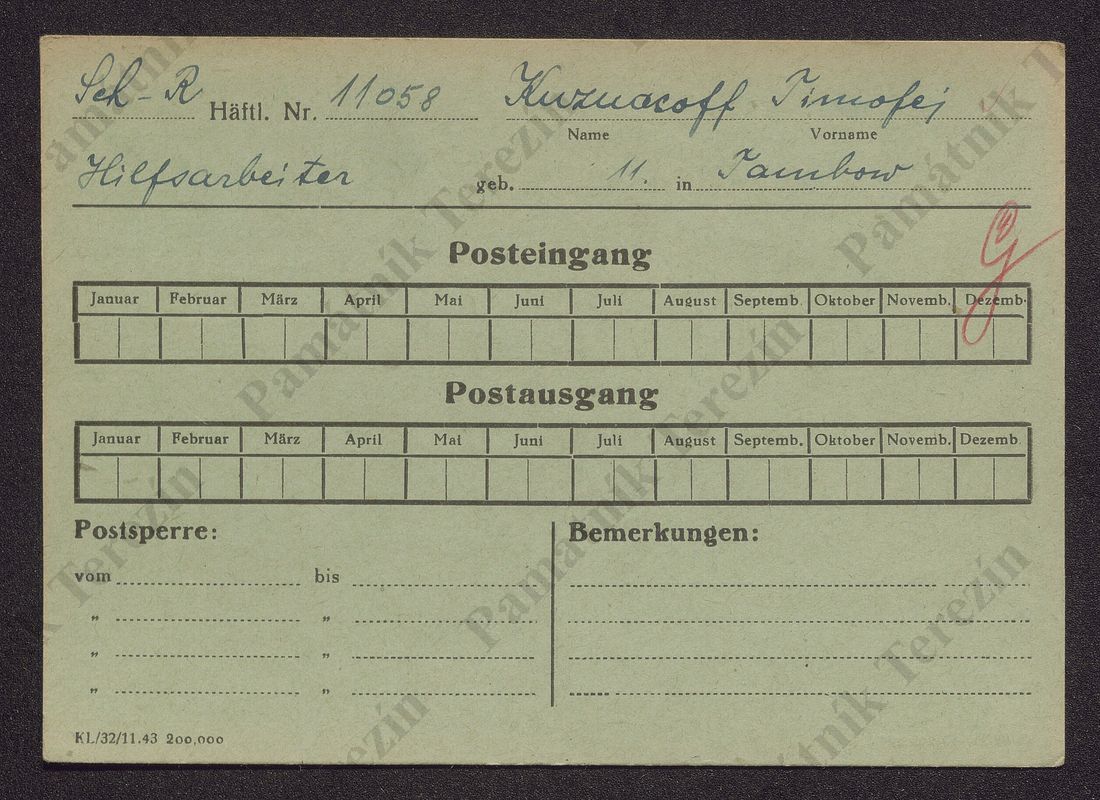 Sch - R Häftl. Nr. 11058 Kuznacoff Timofej
Name Vorname
Hilfsarbeiter geb. 11. in Tambow
G
Posteingang
Januar Februar März April Mai Juni Juli August Septemb. Oktober Novemb. Dezemb.
Postausgang
Januar Februar März April Mai Juni Juli August Septemb. Oktober Novemb. Dezemb.
Postsperre: Bemerkungen:
vom bis
„ „
„ „
„ „
KL/32/11.43 200,000
Památník Terezín